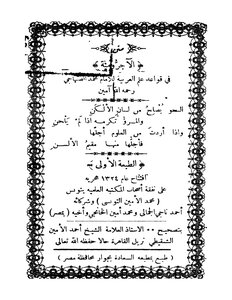 متن
﴿ الآجرومية ﴾
في قواعد علم العربية للامام محمد الصنهاجي
رحمه الله آمين
النحو يصلح من لسان الألكن
والمرء تكرمه اذا لم يلحن
واذا أردت من العلوم أجلها
فأجلها منها مقيم الألسن
﴿ الطبعة الأولى ﴾
افتتاح عام ١٣٢٤ هجريه
على نفقة أصحاب المكتبة العلميه بتونس
( محمد الأمين التونسي ) وشركائه
أحمد ناجي الجمالي ومحمد أمين الخانجي وأخيه ( بمصر )
بتصحيح الاستاذ العلامة الشيخ أحمد الأمين
الشنقيطي نزيل القاهرة حالا حفظه الله تعالى
( طبع بمطبعة السعادة بجوار محافظة مصر )